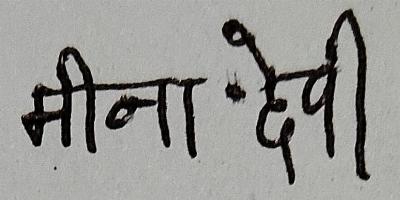 मीना देवी